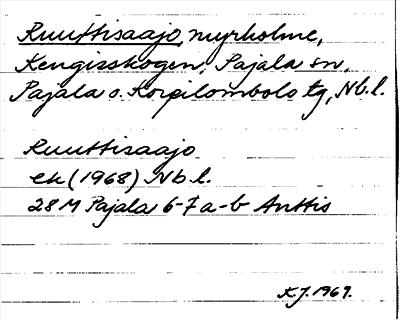 Ruuttisaajo, myrholme,
Kengisskogen, Pajala sn,
Pajala o. Korpilombolo tg, Nb.l.
Ruuttisaajo
ek (1968) Nb.l.
28 M Pajala 6-7 a-b Anttis
K.J. 1969.